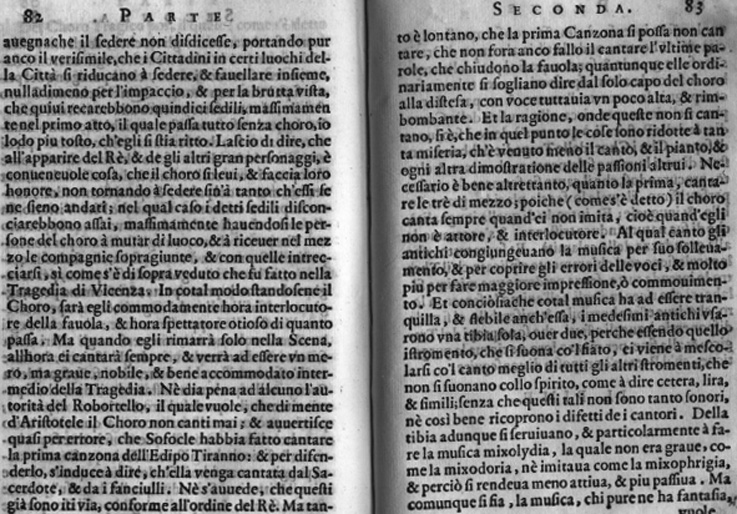 82 PARTE
auegnache il sedere non disdicesse, portando pur
anco il verisimile, che i Cittadini in certi luochi del-
la Città si riducano à sedere, & fauellare insieme,
nulladimeno per l'impaccio, & per la brutta vista,
che quiui recarebbono quindici sedili, massimamen
te nel primo atto, il quale passa tutto senza choro, io
lodo piu tosto, ch'egli si stia ritto. Lascio di dire, che
all'apparire del Rè, & de gli altri gran personaggi, è
conueneuole cosa, che il choro si leui, & faccia loro
honore, non tornando à sedere sin'à tanto ch'essi se
ne sieno andati; nel qual caso i detti sedili discon-
ciarebbono assai, massimamente hauendosi le per-
sone del choro à mutar di luoco, & à riceuer nel mez
zo le compagnie sopragiunte, & con quelle intrec-
ciarsi, sì come s'è di sopra veduto che fu fatto nella
Tragedia di Vicenza. In cotal modo standosene il
Choro, sarà egli commodamente hora interlocuto-
re della fauola, & hora spettatore otioso di quanto
passa. Ma quando egli rimarrà solo nella Scena,
allhora ei cantarà sempre, & verrà ad essere vn me-
ro, ma graue, nobile, & bene accommodato inter-
medio della Tragedia. Nè dia pena ad alcuno l'au-
torità del Robortello, il quale vuole, che di mente
d'Aristotele il Choro non canti mai; & auuertisce
quasi per errore, che Sofocle habbia fatto cantare
la prima canzona dell'Edipo Tiranno: & per difen-
derlo, s'induce à dire, ch'ella venga cantata dal Sa-
cerdote, & da i fanciulli. Nè s'auuede, che questi
già sono iti via, conforme all'ordine del Rè. Ma tan-
SECONDA. 83
to è lontano, che la prima Canzona si possa non can
tare, che non fora anco fallo il cantare l'vltime pa-
role, che chiudono la fauola; quantunque elle ordi-
nariamente si sogliano dire dal solo capo del choro
alla distesa, con voce tuttauia vn poco alta, & rim-
bombante. Et la ragione, onde queste non si can-
tano, si è, che in quel punto le cose sono ridotte à tan
ta miseria, ch'è venuto meno il canto, & il pianto, &
ogni altra dimostratione delle passioni altrui. Ne-
cessario è bene altrettanto, quanto la prima, canta-
re le trè di mezzo; poiche (come s'è detto) il choro
canta sempre quand'ei non imita, cioè quand'egli
non è attore, & interlocutore. Al qual canto gli
antichi congiungeuano la musica per suo solleua-
mento, & per coprire gli errori delle voci, & molto
più per fare maggiore impressione, ò commouimen-
to. Et conciosiache cotal musica ha ad essere tran-
quilla, & flebile anch'essa, i medesimi antichi vsa-
rono vna tibia sola, ouer due, perche essendo quello
istromento, che si suona co'l fiato, ei viene à mesco-
larsi co'l canto meglio di tutti gli altri stromenti, che
non si suonano collo spirito, come à dire cetera, lira,
& simili; senza che questi tali non sono tanto sonori,
nè così bene ricoprono i difetti de i cantori. Della
tibia adunque si seruiuano, & particolarmente à fa-
re la musica mixolydia, la quale non era graue, co-
me la mixodoria, nè imitaua come la mixophrigia,
& perciò si rendeua meno attiua, & piu passiua. Ma
comunque si sia, la musica, chi pure ne ha fantasia,
vuole